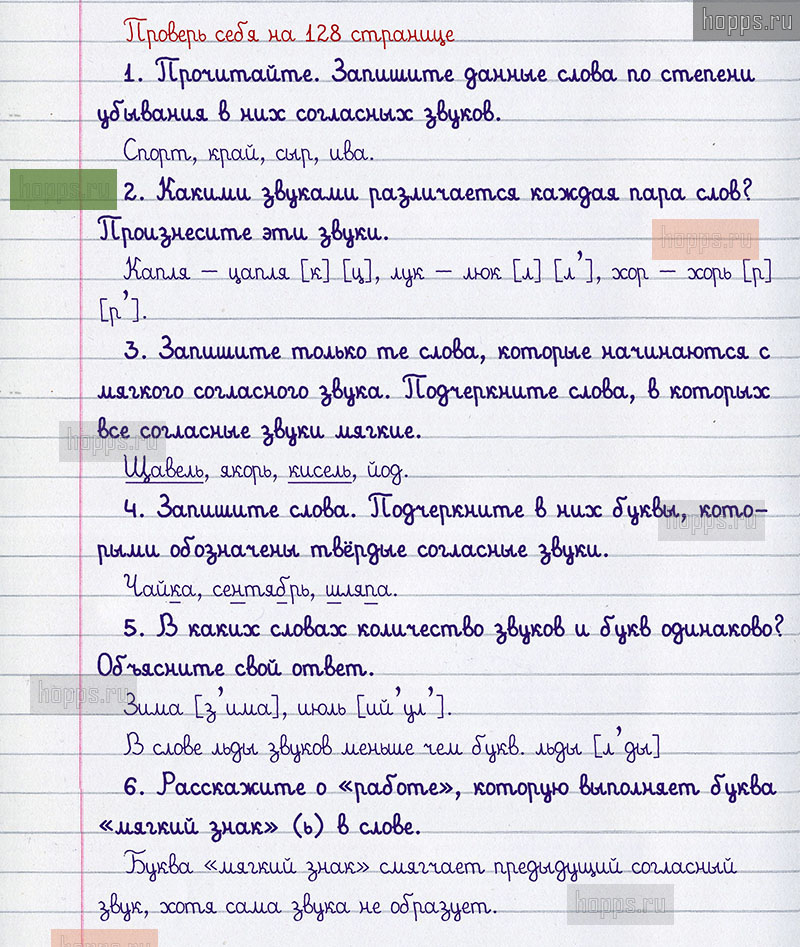 hopps.ru
Проверь себя на 128 странице
1. Прочитайте. Запишите данные слова по степени
убывания в них согласных звуков.
Спорт, край, сыр, ива.
hopps.ru
2. Какими звуками различается каждая пара слов?
Произнесите эти звуки.
hopps.ru
Капля – цапля [к] [ц], лук – люк [л] [л’], хор – хорь [р]
[р’].
3. Запишите только те слова, которые начинаются с
мягкого согласного звука. Подчеркните слова, в которых
все согласные звуки мягкие.
hopps.ru
Щавель, якорь, кисель, йод.
4. Запишите слова. Подчеркните в них буквы, кото-
рыми обозначены твёрдые согласные звуки.
hopps.ru
Чайка, сентябрь, шляпа.
5. В каких словах количество звуков и букв одинаково?
Объясните свой ответ.
hopps.ru
Зима [з’има], июль [ий’ул’].
В слове льды звуков меньше чем букв. льды [л’ды]
6. Расскажите о «работе», которую выполняет буква
«мягкий знак» (ь) в слове.
Буква «мягкий знак» смягчает предыдущий согласный
звук, хотя сама звука не образует.
hopps.ru
hopps.ru